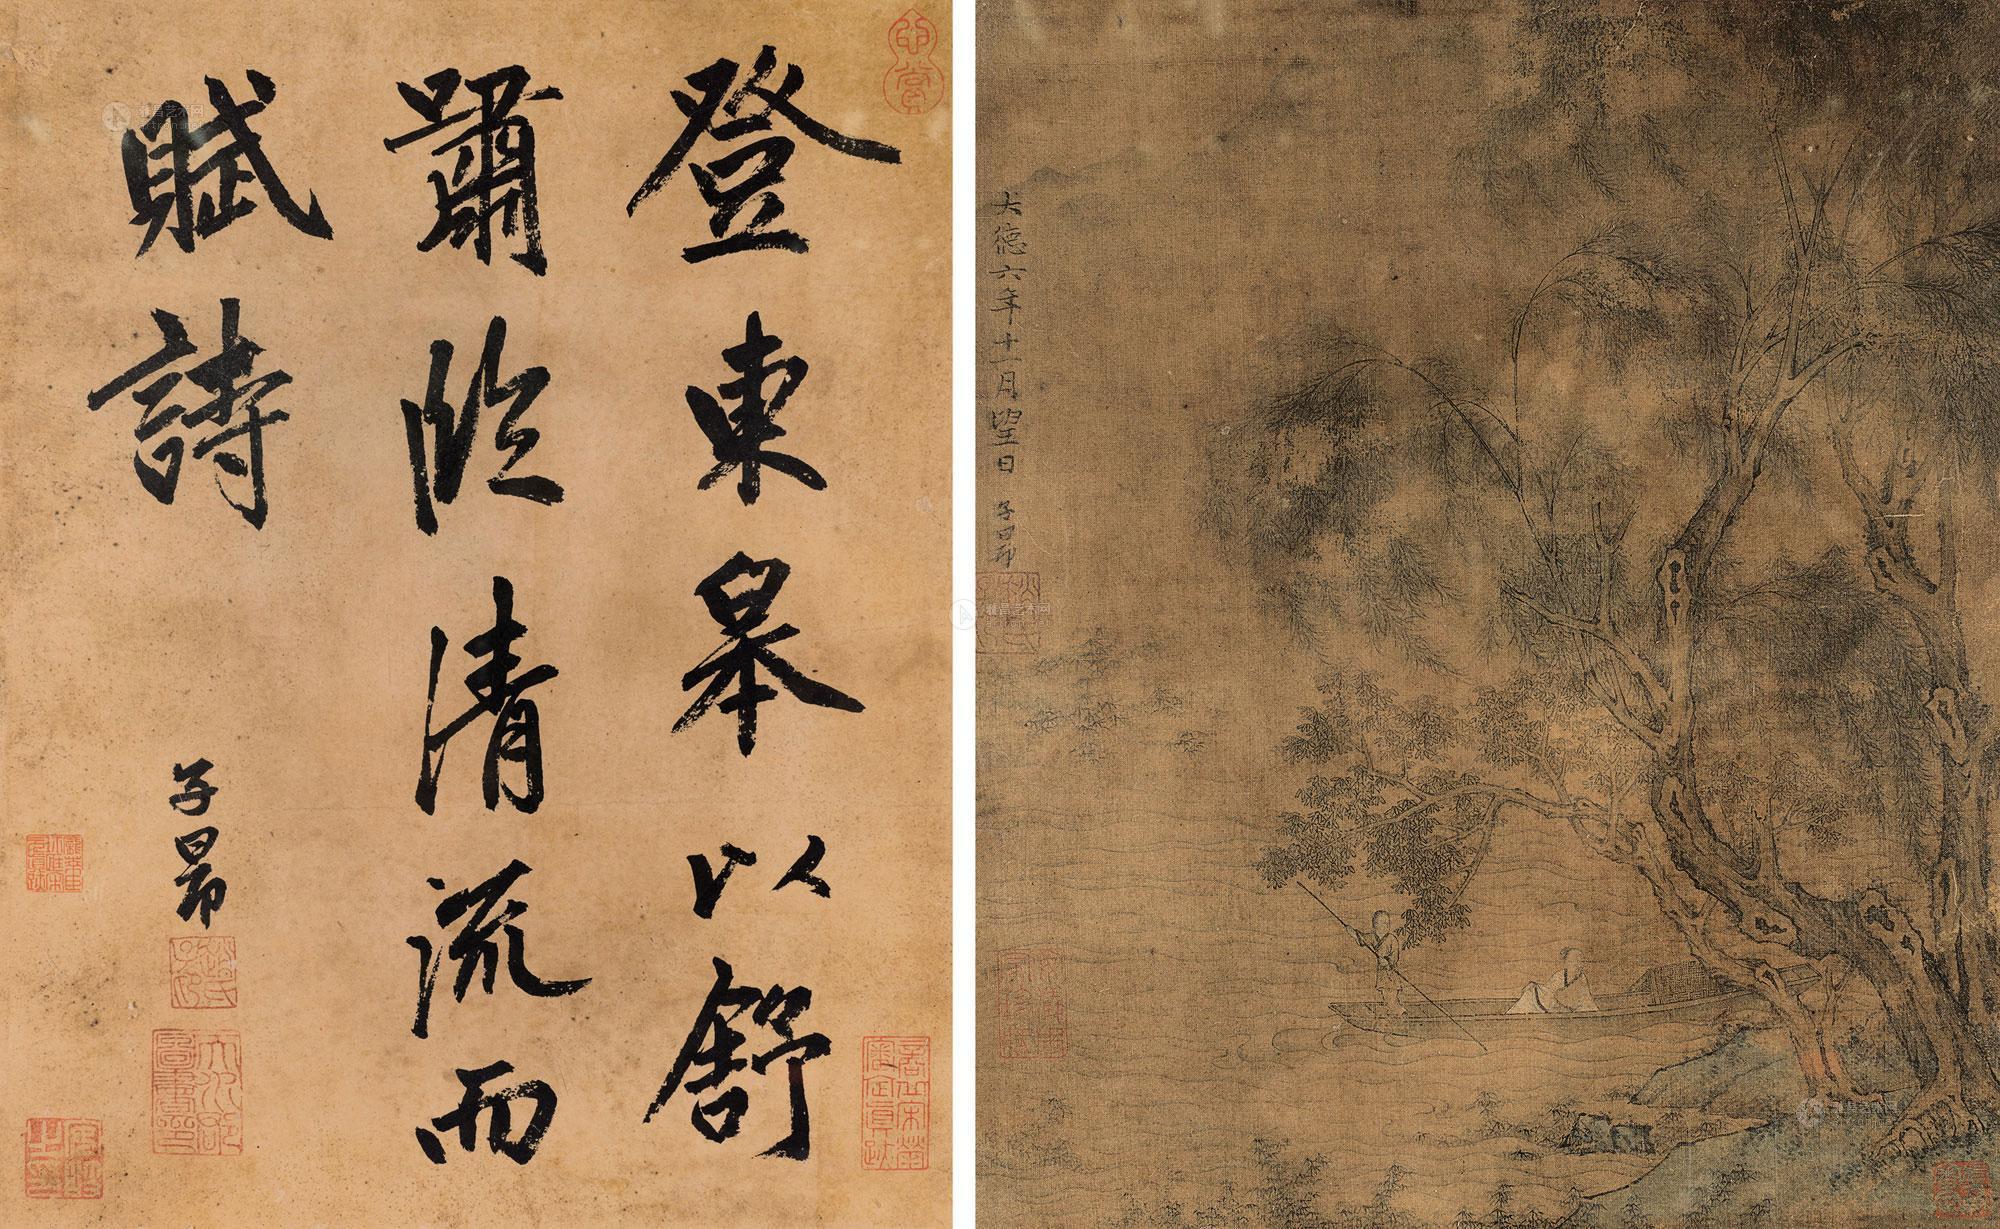 登東皋以舒
嘯臨清流而
賦詩
子昂
大德六年十一月望日 子昂
雅昌艺术网